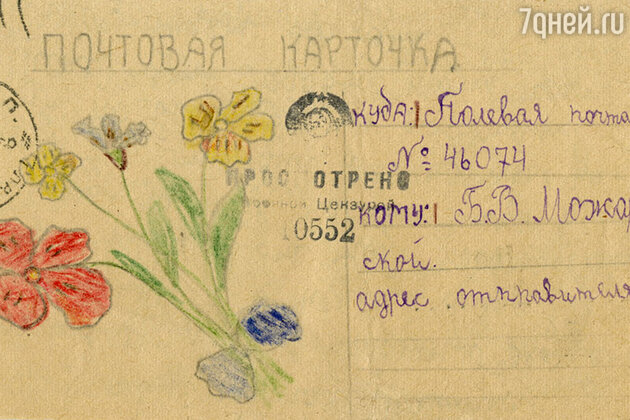 7дней.ru
ПОЧТОВАЯ КАРТОЧКА
куда: Полевая почта
№ 46074
ПРОСМОТРЕНО
Военной Цензурой
10552
кому: Б.В. Можар
ской.
адрес отправителя